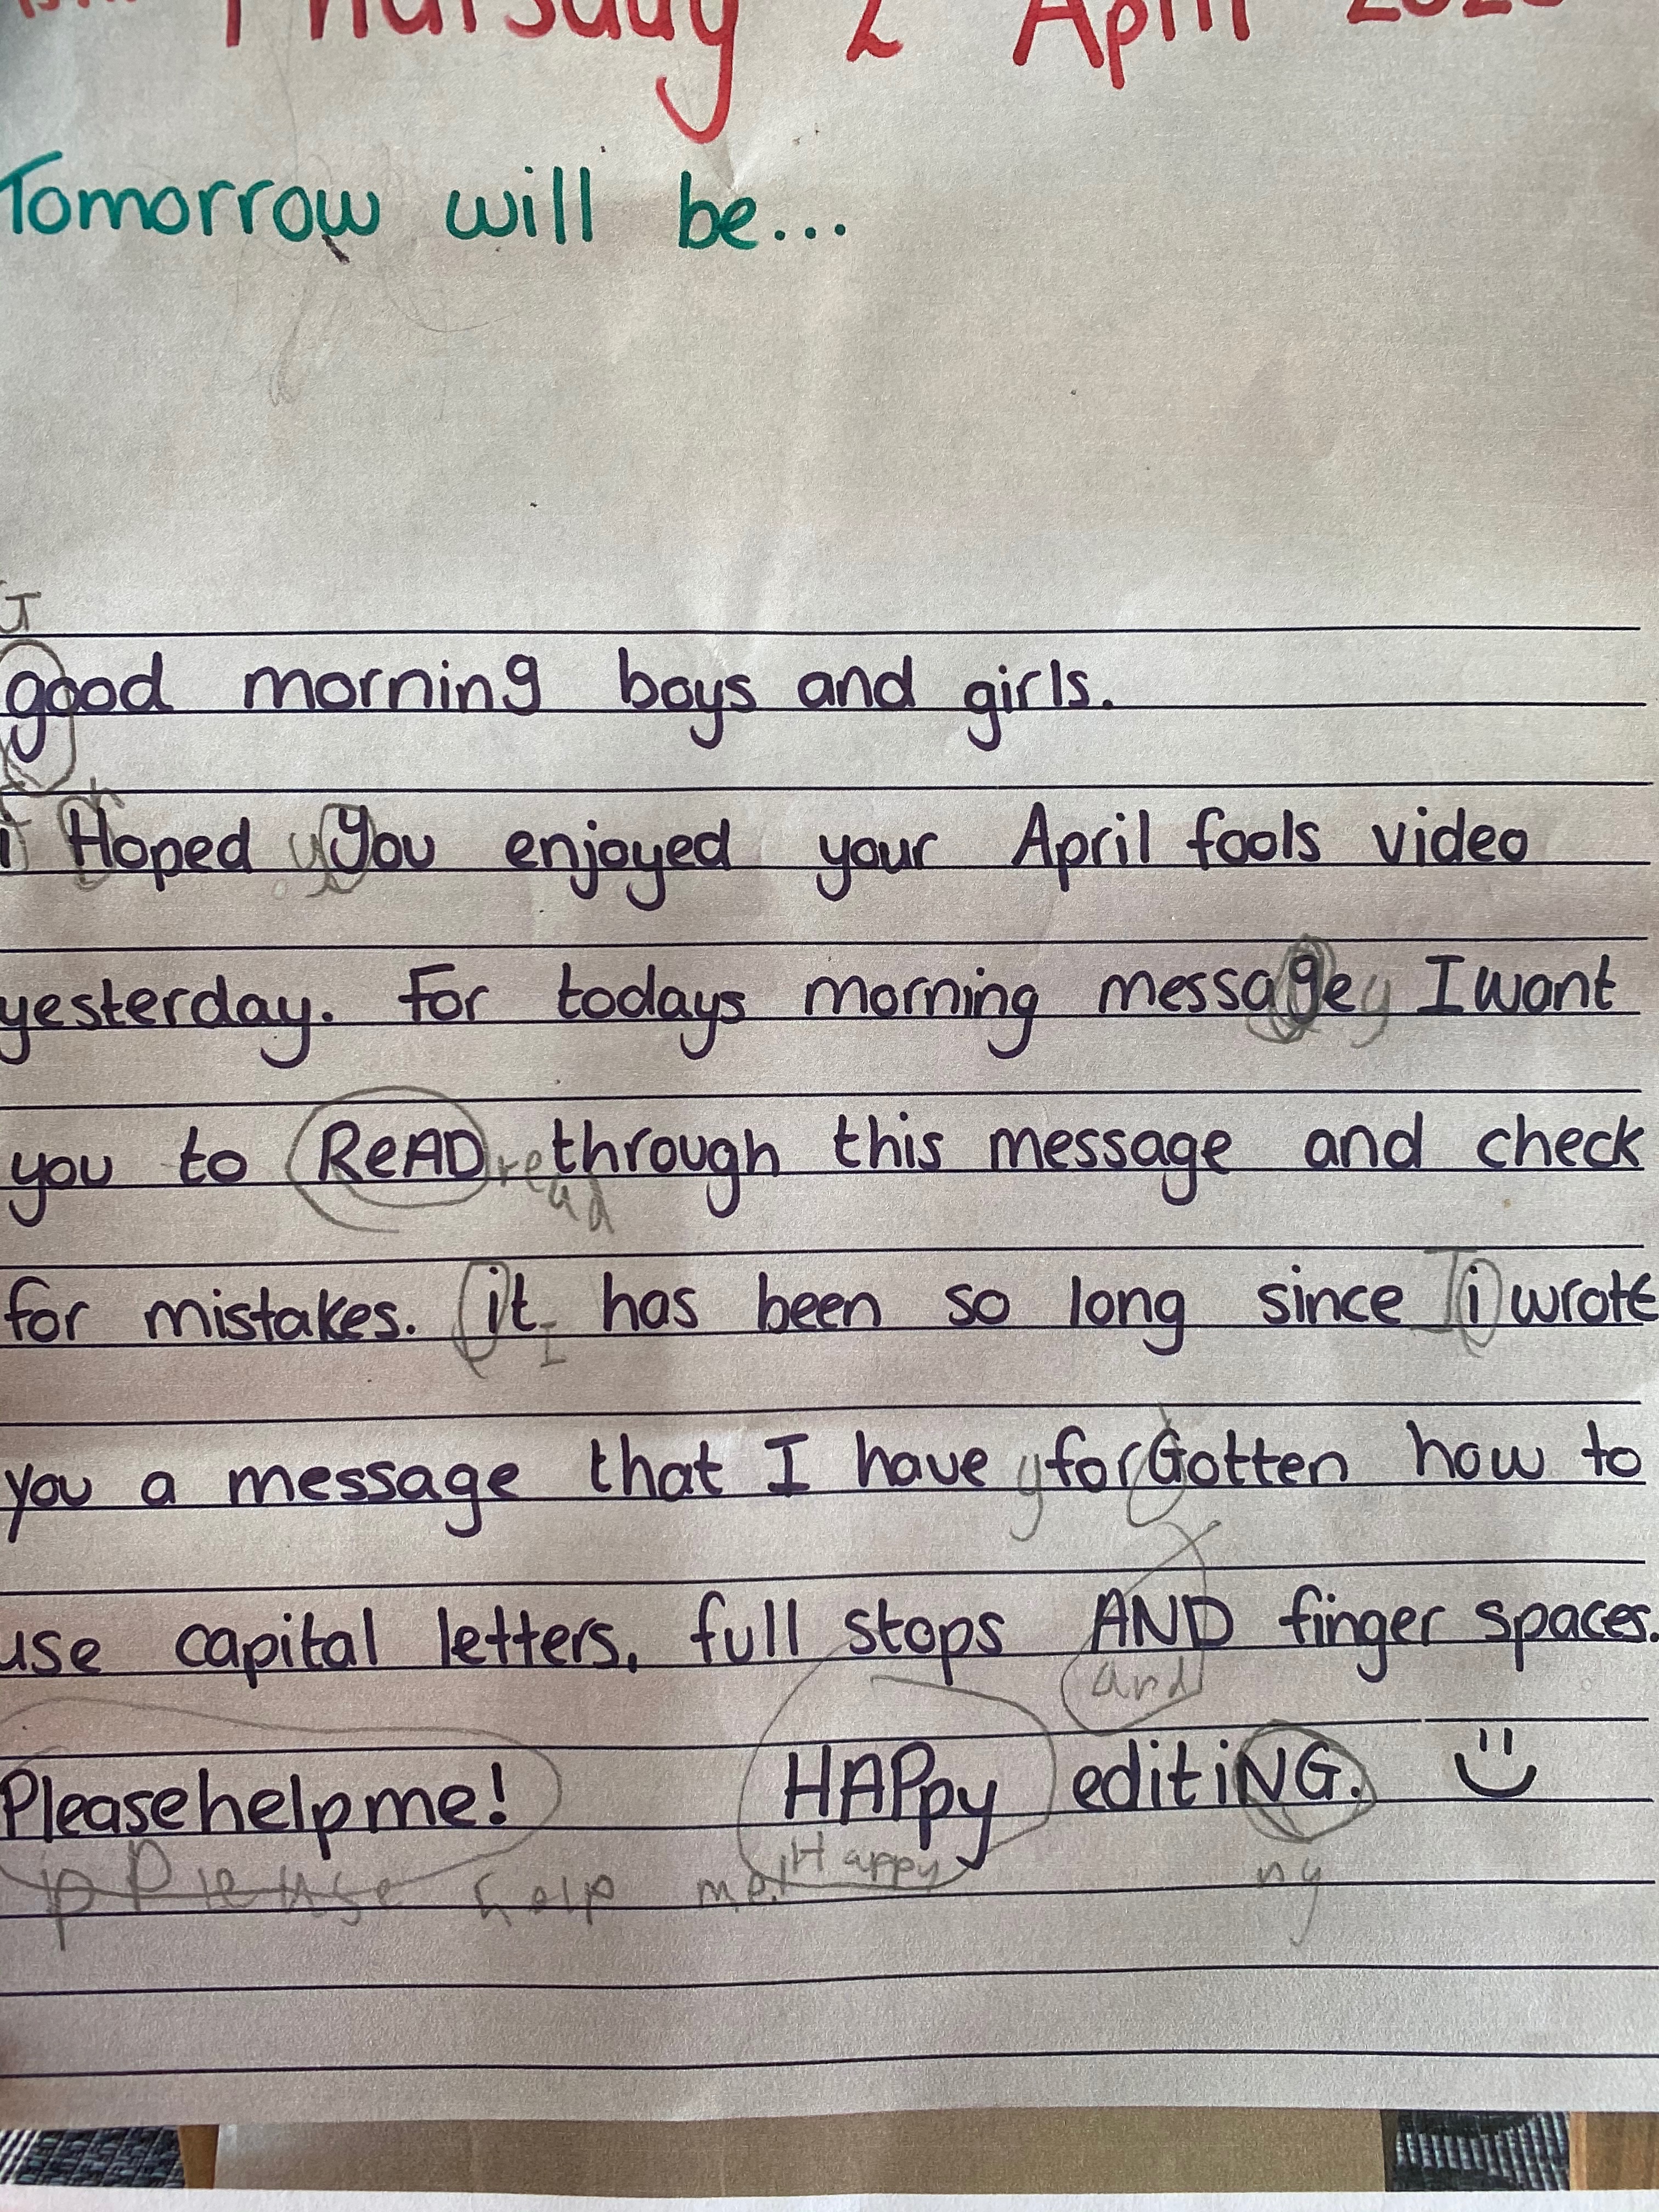 Thursday 2 April
Tomorrow will be...
G
good morning boys and girls.
h
i Hoped y You enjoyed your April fools video
yesterday. For todays morning message g I want
you to ReAD read through this message and check
for mistakes. it I has been so long since I i wrote
you a message that I have g forGotten how to
use capital letters, full stops AND finger spaces.
and
Pleasehelpme! HAPpy editiNG.
p Please help me! Happy ng